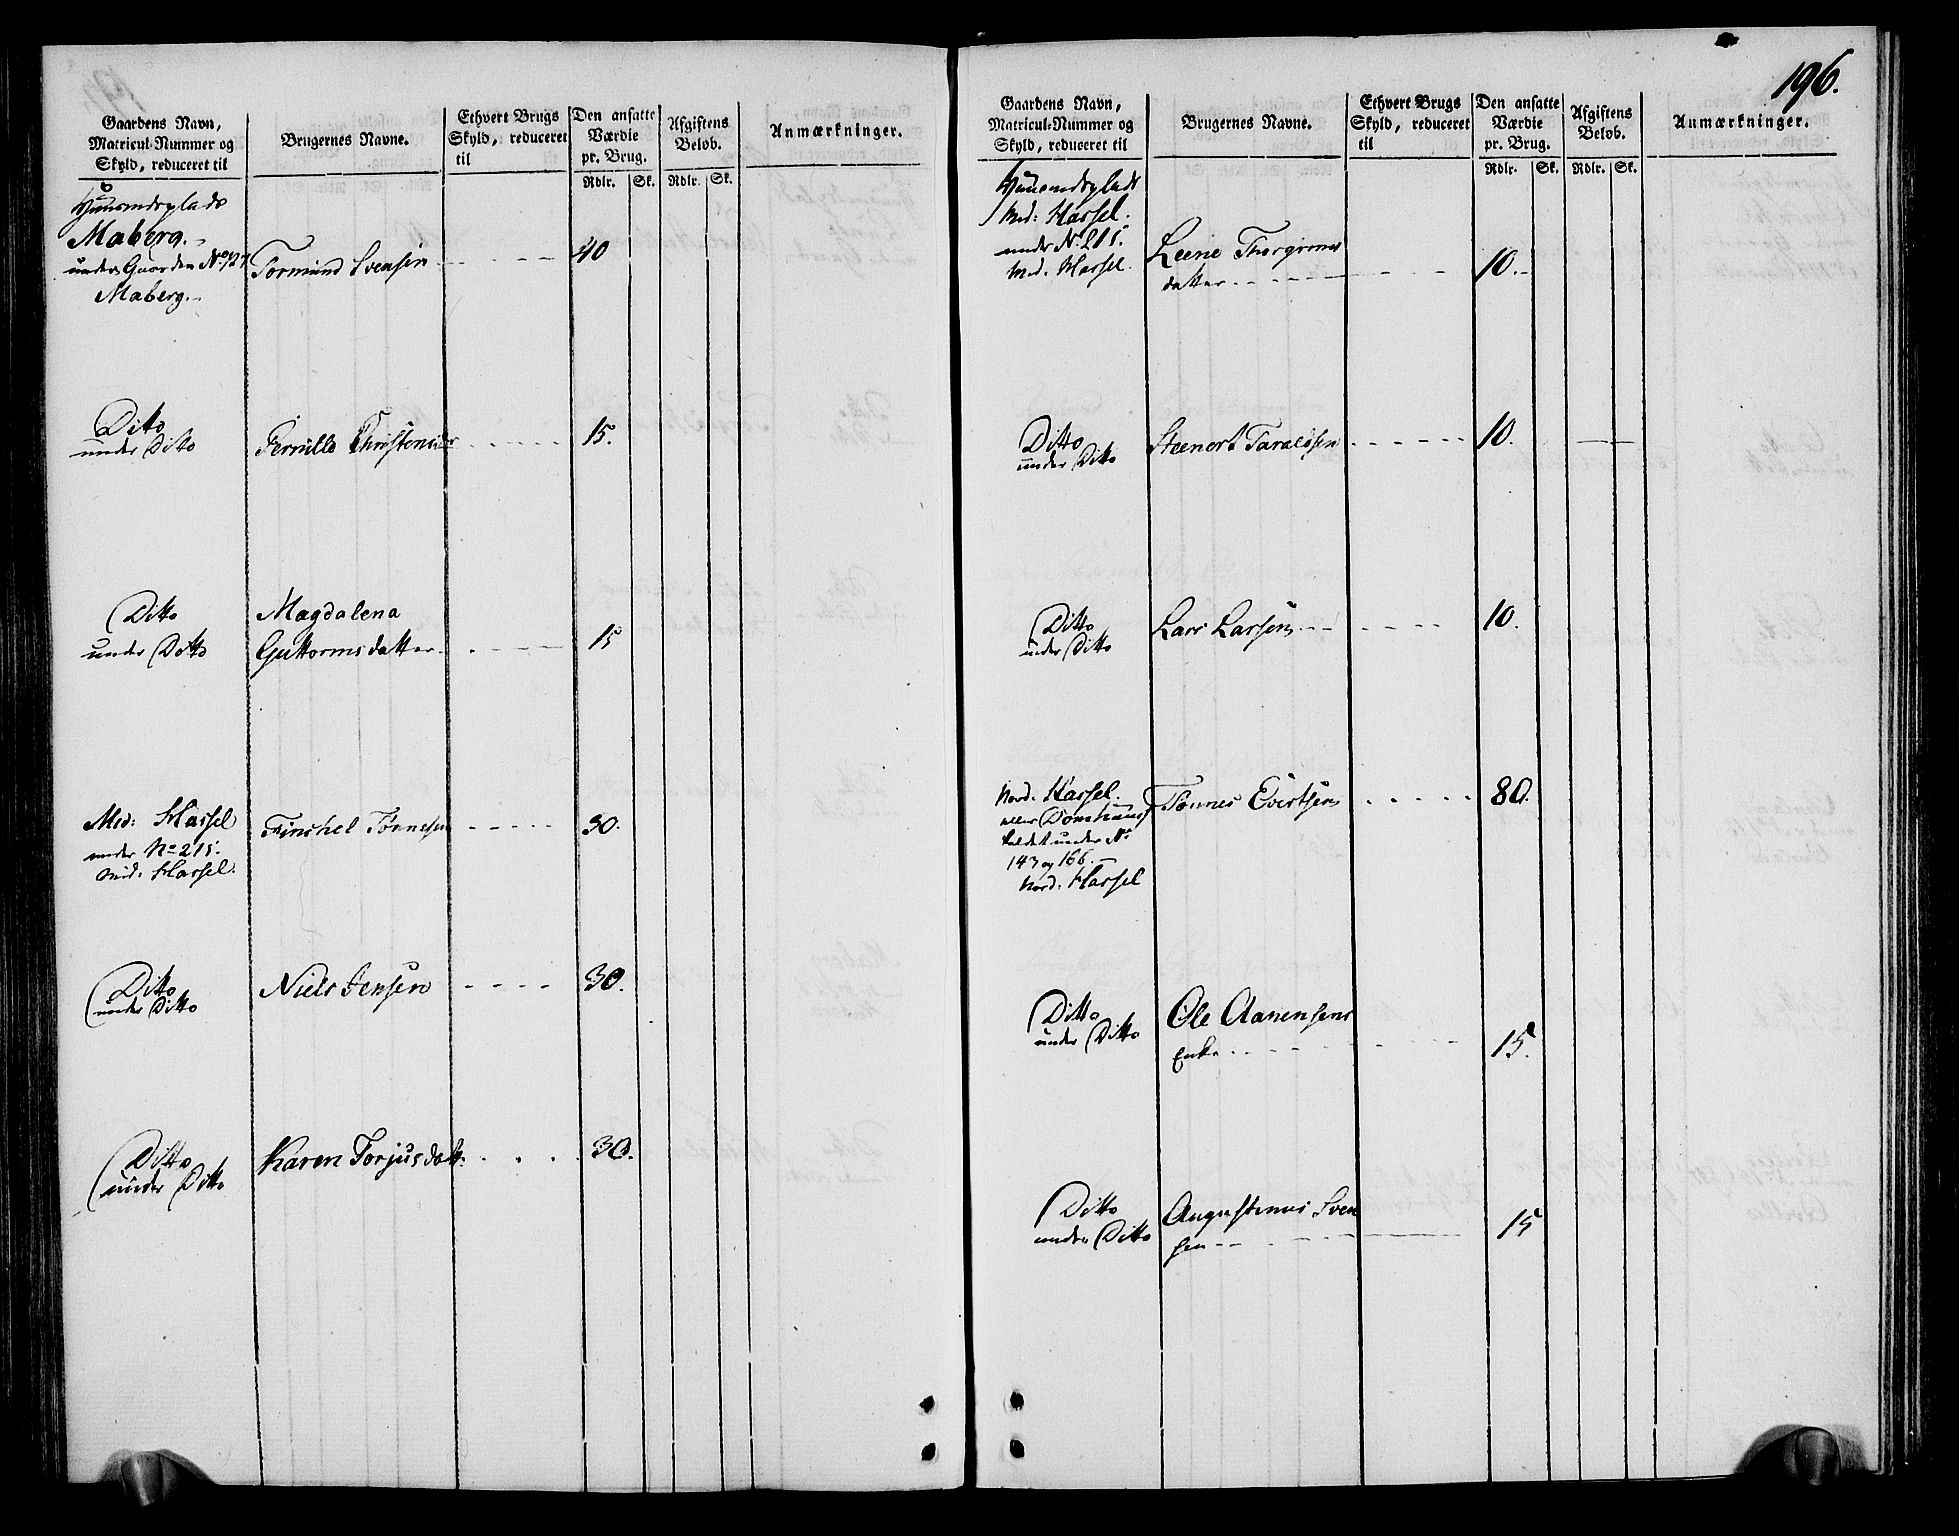 Gaardens Navn,
Matricul-Nummer og
Skyld, reduceret til
Brugernes Navne.
Ethvert Brugs
Skyld, reduceret
til
Den ansatte
Værdie
pr. Brug.
Rdlr. Sk.
Afgiftens
Beløb.
Rdlr. Sk.
Anmærkninger.
Huusmdsplads
Maberg.
under Gaarden No 127
Maberg.
Tormund Svensen 40
Ditto
under Ditto
Pernille Christensdtr 15.
Ditto
under Ditto
Magdalena
Guttormsdatter 15
Mid: Hassel
under No 215.
mid: Hassel.
Tønnesen 30.
Ditto
under Ditto
Niels Jensen 30.
Ditto
under Ditto
Karen Torjusdatt: 30.
196.
Gaardens Navn,
Matricul-Nummer og
Skyld, reduceret til
Brugernes Navne.
Ethvert Brugs
Skyld, reduceret
til
Den ansatte
Værdie
pr. Brug.
Rdlr. Sk.
Afgiftens
Beløb.
Rdlr. Sk.
Anmærkninger.
Huusmdsplads
Mid: Hassel.
under No 215.
Mid. Hassel.
Leene
datter 10.
Ditto
under Ditto
Steenert Taraldsen 10.
Ditto
under Ditto
Lars Larsen 10.
Nord. Hassel.
eller
kaldet under No
143 og 166.
Nord. Hassel
Tønnes Evertsen 80.
Ditto
under Ditto
Ole Aanensens
Enke 15.
Ditto
under Ditto
Augustinus Sven
sen 15